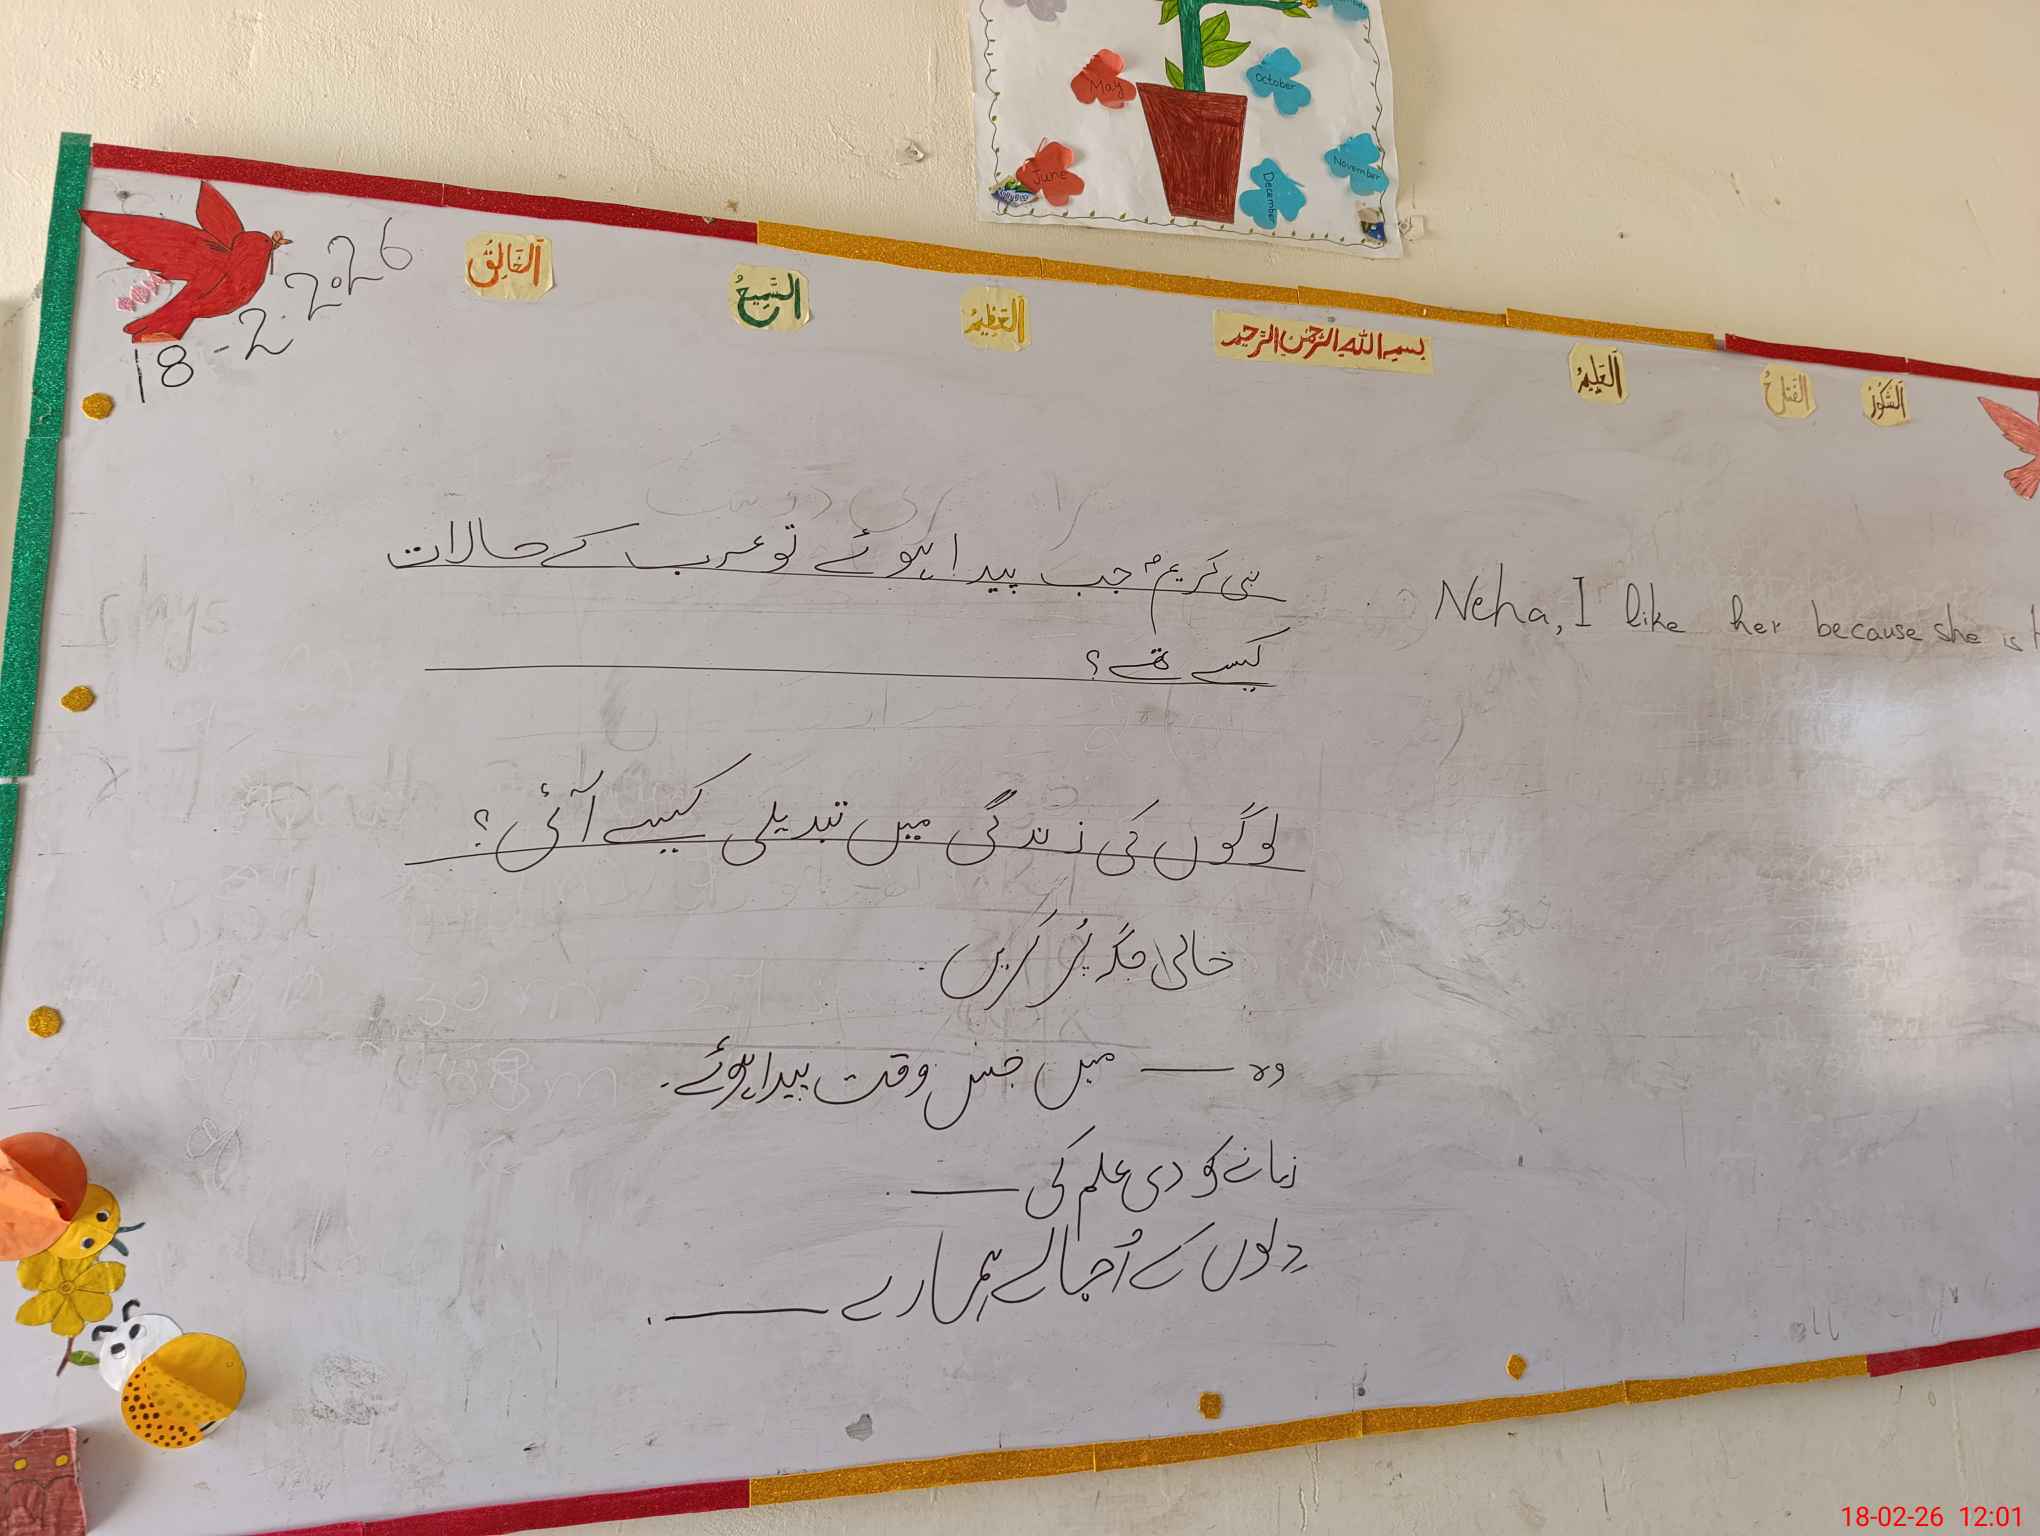 May
October
June
November
December
18-2-2026
اَلْخَالِقُ
اَلسَّمِيْعُ
اَلْعَظِيْمُ
بسم الله الرحمن الرحیم
اَلْعَلِيْمُ
اَلْفَتَّاحُ
اَلشَّكُوْرُ
نبی کریمؐ جب پیدا ہوئے تو عرب کے حالات
کیسے تھے؟
لوگوں کی زندگی میں تبدیلی کیسے آئی؟
خالی جگہ پُر کریں
وہ ــــــ میں جس وقت پیدا ہوئے۔
زمانے کو دی علم کی ــــــ۔
دِلوں کے اُجالے ہمارے ــــــ۔
Neha, I like her because she is
18-02-26 12:01